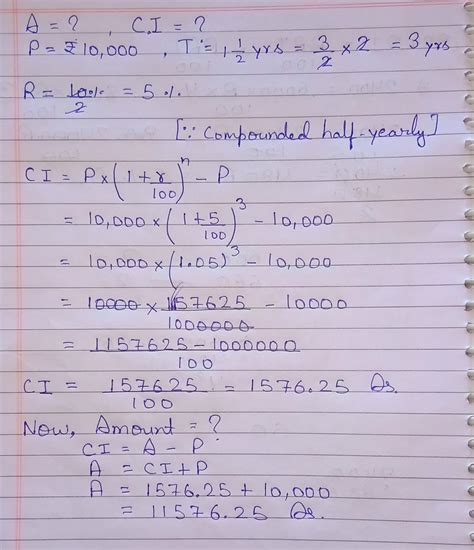 A = ? , C.I = ?
P = ₹10,000 , T = 1 1/2 yrs = 3/2 × 2 = 3 yrs
R = 10%/2 = 5 %.
[∵ Compounded half-yearly]
CI = P × (1 + r/100)^n − P
= 10,000 × (1 + 5/100)^3 − 10,000
= 10,000 × (1.05)^3 − 10,000
= 10000 × 1157625/1000000 − 10000
= 1157625 − 1000000/100
CI = 157625/100 = 1576.25 Rs.
Now, Amount = ?
CI = A − P
A = CI + P
A = 1576.25 + 10,000
= 11576.25 Rs.